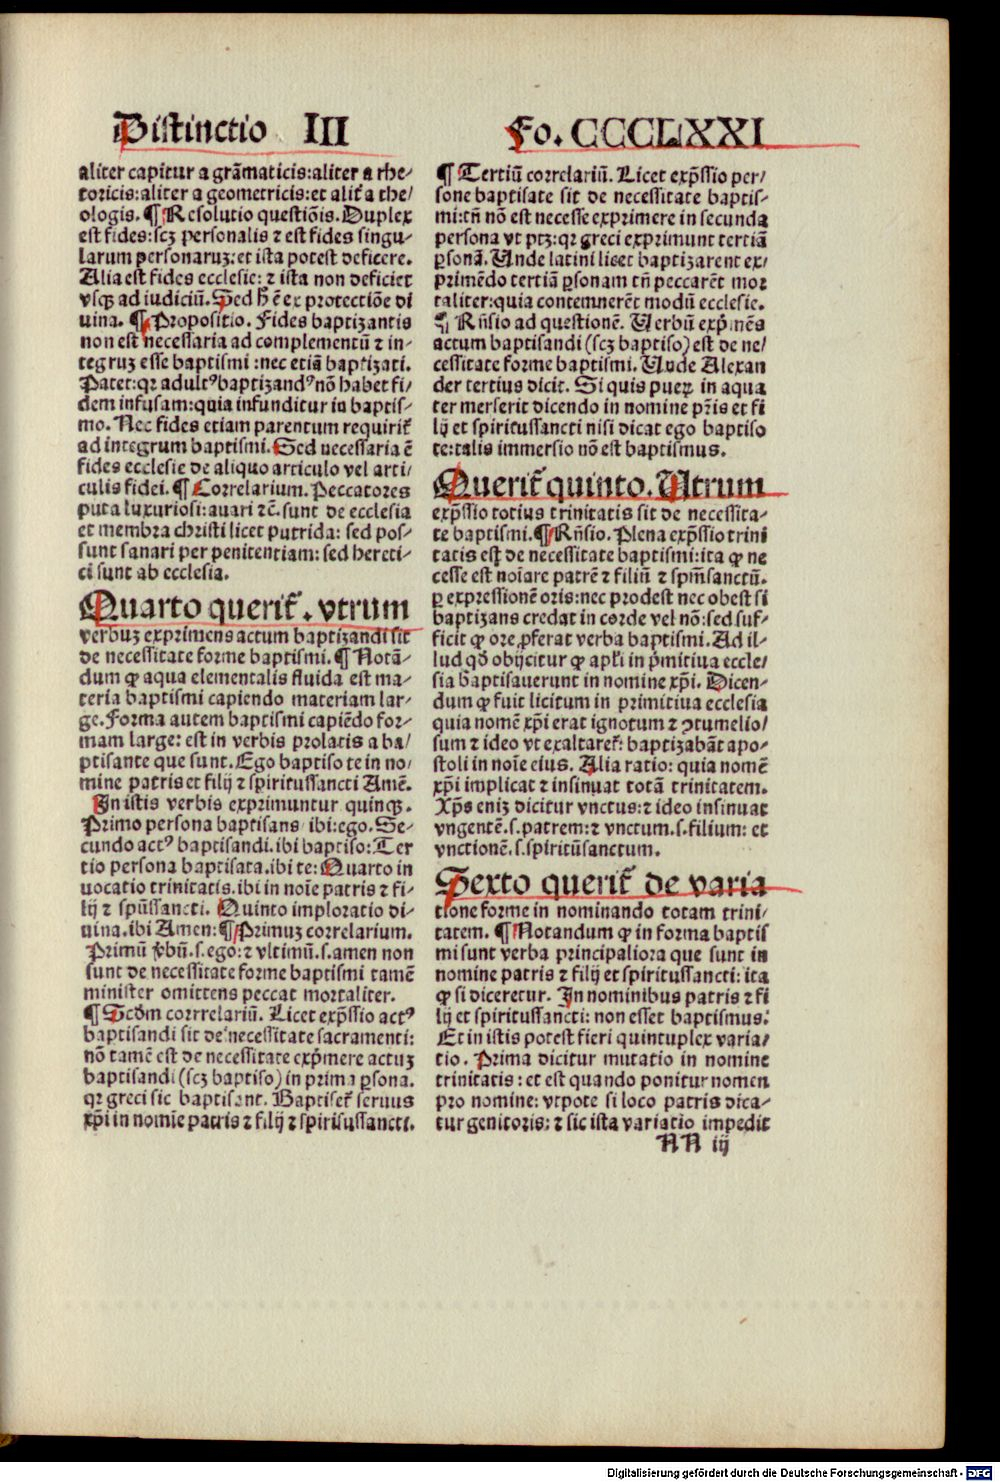 Distinctio III
Fo. CCCCLXXI
aliter capitur a grãmaticis:aliter a rhe-
toricis:aliter a geometricis:et alit̃ a the/
ologis. ¶ Resolutio questiõis. Duplex
est fides:scꝫ personalis ⁊ est fides singu-
larum personaruꝫ:et ista potest deficere.
Alia est fides ecclesie: ⁊ ista non deficiet
vsqꝫ ad iudiciũ. Sed h̃ ẽ ex protectiõe di
uina. ¶ Propositio. Fides baptizantis
non est necessaria ad complementũ ⁊ in-
tegruꝫ esse baptismi :nec etiã baptizati.
Patet:qꝛ adultꝰ baptizandꝰ nõ habet fi/
dem infusam:quia infunditur in baptis-
mo. Nec fides etiam parentum requirit̃
ad integrum baptismi. Sed necessaria ẽ
fides ecclesie de aliquo articulo vel arti/
culis fidei. ¶ Correlarium. Peccatores
puta luxuriosi: auari ⁊c̃. sunt de ecclesia
et membra christi licet putrida: sed pos-
sunt sanari per penitentiam: sed hereti-
ci sunt ab ecclesia.
Quarto querit̃ . vtrum
verbuꝫ exprimens actum baptizandi sit
de necessitate forme baptismi. ¶ Notã-
dum ꝙ aqua elementalis fluida est ma-
teria baptismi capiendo materiam lar-
ge. Forma autem baptismi capiẽdo for-
mam large: est in verbis prolatis a ba/
ptisante que sunt. Ego baptiso te in no/
mine patris et filij ⁊ spiritussancti Amẽ.
In istis verbis exprimuntur quinqꝫ.
Primo persona baptisans ibi:ego. Se-
cundo actꝰ baptisandi.ibi baptiso: Ter
tio persona baptisata.ibi te: Quarto in
uocatio trinitatis.ibi in noĩe patris ⁊ fi-
lij ⁊ spũssancti. Quinto imploratio di-
uina.ibi Amen: ¶ Primuꝫ correlarium.
Primũ ṽbũ.s.ego: ⁊ vltimũ.s.amen non
sunt de necessitate forme baptismi tamẽ
minister omittens peccat mortaliter.
¶ Scðm corrrelariũ. Licet exp̃ssio actꝰ
baptisandi sit de necessitate sacramenti:
nõ tamẽ est de necessitate exp̃mere actuꝫ
baptisandi (scꝫ baptiso) in prima ꝑsona.
qꝛ greci sic baptisant. Baptiset̃ seruus
xp̃i in nomĩe patris ⁊ filij ⁊ spiritussancti.
¶ Tertiũ correlariũ. Licet exp̃ssio per/
sone baptisate sit de necessitate baptis-
mi:tñ nõ est necesse exprimere in secunda
persona vt ptꝫ:qꝛ greci exprimunt tertiã
ꝑsonã. Unde latini licet baptizarent ex/
primẽdo tertiã ꝑsonam tñ peccarẽt mor
taliter:quia contemnerẽt modũ ecclesie.
¶ Rñsio ad questionẽ. Uerbũ exp̃mẽs
actum baptisandi (scꝫ baptiso) est de ne/
cessitate forme baptismi. Unde Alexan
der tertius dicit. Si quis pueꝝ in aqua
ter merserit dicendo in nomine pr̃is et fi
lij et spiritussancti nisi dicat ego baptiso
te:talis immersio nõ est baptismus.
Querit̃ quinto. Utrum
exp̃ssio totius trinitatis sit de necessita-
te baptismi. ¶ Rñsio. Plena exp̃ssio trini
tatis est de necessitate baptismi:ita ꝙ ne
cesse est noĩare patrẽ ⁊ filiũ ⁊ spm̃sanctũ.
ꝑ expressionẽ oris:nec prodest nec obest si
baptizans credat in corde vel nõ:sed suf-
ficit ꝙ ore ꝓferat verba baptismi. Ad il-
lud qð obijcitur ꝙ apl̃i in p̃mitiua eccle/
sia baptisauerunt in nomine xp̃i. Dicen-
dum ꝙ fuit licitum in primitiua ecclesia
quia nomẽ xp̃i erat ignotum ⁊ ꝯtumelio/
sum ⁊ ideo vt exaltaret̃: baptizabãt apo-
stoli in noĩe eius. Alia ratio: quia nomẽ
xp̃i implicat ⁊ insinuat totã trinitatem.
Xp̃s eniꝫ dicitur vnctus: ⁊ ideo insinuat
vngentẽ.s.patrem: ⁊ vnctum.s.filium: et
vnctionẽ.s.spiritũsanctum.
Sexto querit̃ de varia
tione forme in nominando totam trini/
tatem. ¶ Notandum ꝙ in forma baptis
mi sunt verba principaliora que sunt in
nomine patris ⁊ filij et spiritussancti: ita
ꝙ si diceretur. In nominibus patris ⁊ fi
lij et spiritussancti: non esset baptismus:
Et in istis potest fieri quintuplex varia/
tio. Prima dicitur mutatio in nomine
trinitatis: et est quando ponitur nomen
pro nomine: vtpote si loco patris dica-
tur genitoris: ⁊ sic ista variatio impedit
AA iij
Digitalisierung gefördert durch die Deutsche Forschungsgemeinschaft - DFG